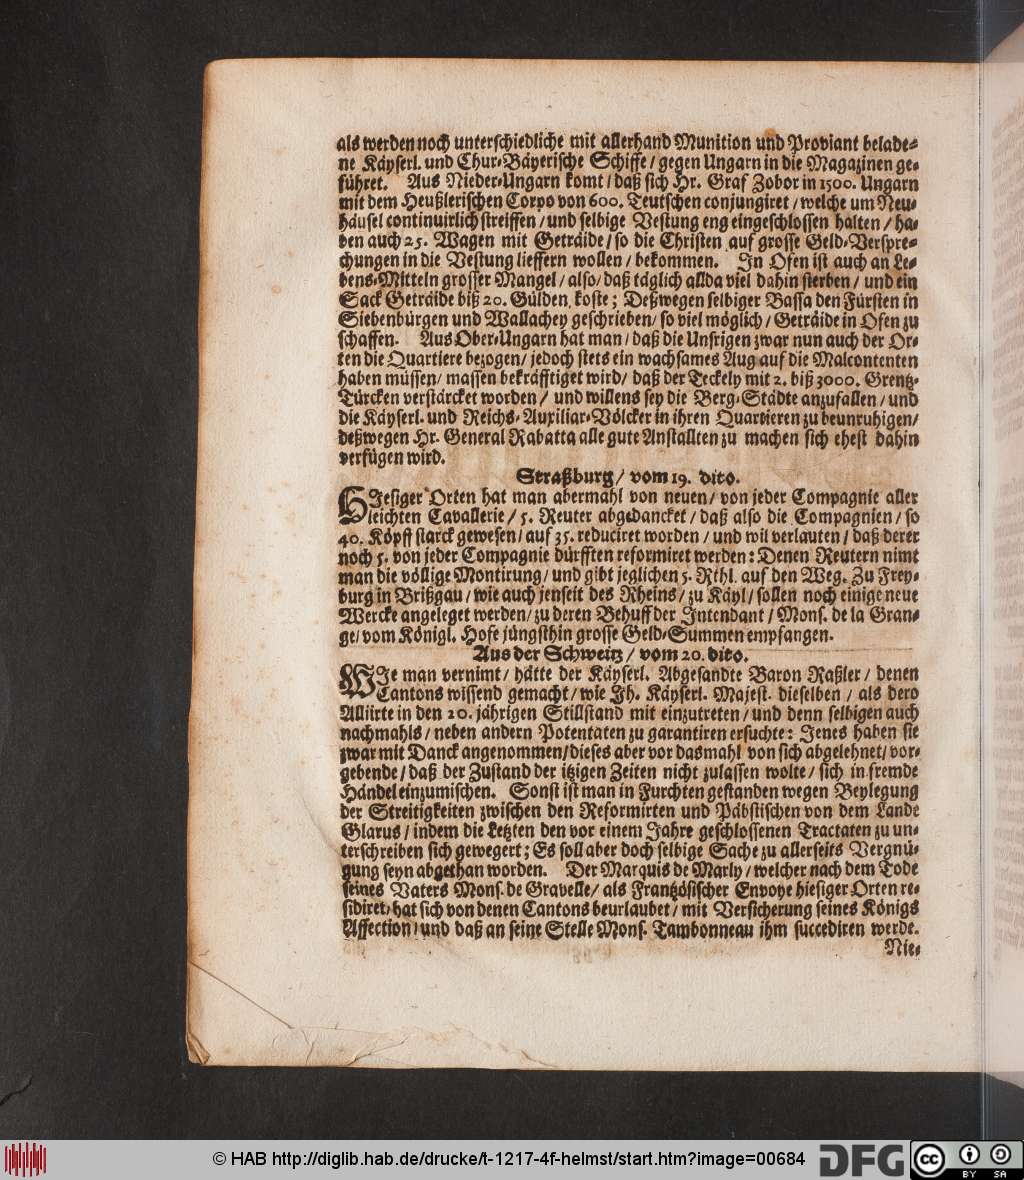 als werden noch unterschiedliche mit allerhand Munition und Proviant belade-
ne Käyserl. und Chur-Bäyerische Schiffe / gegen Ungarn in die Magazinen ge-
führet. Aus Nieder-Ungarn komt / daß sich Hr. Graf Zobor in 1500. Ungarn
mit dem Heußlerischen Corpo von 600. Teutschen conjungiret / welche um Neu-
häusel continuirlich streiffen / und selbige Vestung eng eingeschlossen halten / ha-
ben auch 25. Wagen mit Geträide / so die Christen auf grosse Geld-Verspre-
chungen in die Vestung lieffern wollen / bekommen. In Ofen ist auch an Le-
bens-Mitteln grosser Mangel / also / daß täglich allda viel dahin sterben / und ein
Sack Geträide biß 20. Gülden koste ; Deßwegen selbiger Bassa den Fürsten in
Siebenbürgen und Wallachey geschrieben / so viel möglich / Geträide in Ofen zu
schaffen. Aus Ober-Ungarn hat man / daß die Unsrigen zwar nun auch der Or-
ten die Quartiere bezogen / jedoch stets ein wachsames Aug auf die Malcontenten
haben müssen / massen bekräfftiget wird / daß der Teckely mit 2. biß 3000. Grentz-
Türcken verstärcket worden / und willens sey die Berg-Städte anzufallen / und
die Käyserl. und Reichs-Auxiliar-Völcker in ihren Quartieren zu beunruhigen /
deßwegen Hr. General Rabatta alle gute Anstallten zu machen sich ehest dahin
verfügen wird.
Straßburg / vom 19. dito.
HIesiger Orten hat man abermahl von neuen / von jeder Compagnie aller
leichten Cavallerie / 5. Reuter abgedancket / daß also die Compagnien / so
40. Köpff starck gewesen / auf 35. reduciret worden / und wil verlauten / daß derer
noch 5. von jeder Compagnie dürfften reformiret werden : Denen Reutern nimt
man die völlige Montirung / und gibt jeglichen 5. Rthl. auf den Weg. Zu Frey-
burg in Brißgau / wie auch jenseit des Rheins / zu Käyl / sollen noch einige neue
Wercke angeleget werden / zu deren Behuff der Intendant / Mons. de la Gran-
ge / vom Königl. Hofe jüngsthin grosse Geld-Summen empfangen.
Aus der Schweitz / vom 20. dito.
WIe man vernimt / hätte der Käyserl. Abgesandte Baron Raßler / denen
Cantons wissend gemacht / wie Ih. Käyserl. Majest. dieselben / als dero
Alliirte in den 20. jährigen Stillstand mit einzutreten / und denn selbigen auch
nachmahls / neben andern Potentaten zu garantiren ersuchte : Jenes haben sie
zwar mit Danck angenommen / dieses aber vor dasmahl von sich abgelehnet / vor-
gebende / daß der Zustand der itzigen Zeiten nicht zulassen wolte / sich in fremde
Händel einzumischen. Sonst ist man in Furchten gestanden wegen Beylegung
der Streitigkeiten zwischen den Reformirten und Päbstischen von dem Lande
Glarus / indem die Letzten den vor einem Jahre geschlossenen Tractaten zu un-
terschreiben sich gewegert ; Es soll aber doch selbige Sache zu allerseits Vergnü-
gung seyn abgethan worden. Der Marquis de Marly / welcher nach dem Tode
seines Vaters Mons. de Gravelle / als Frantzösischer Envoye hiesiger Orten re-
sidiret / hat sich von denen Cantons beurlaubet / mit Versicherung seines Königs
Affection / und daß an seine Stelle Mons. Tambonneau ihm succediren werde.
Nie-
© HAB http://diglib.hab.de/drucke/t-1217-4f-helmst/start.htm?image=00684
DFG
cc
BY SA